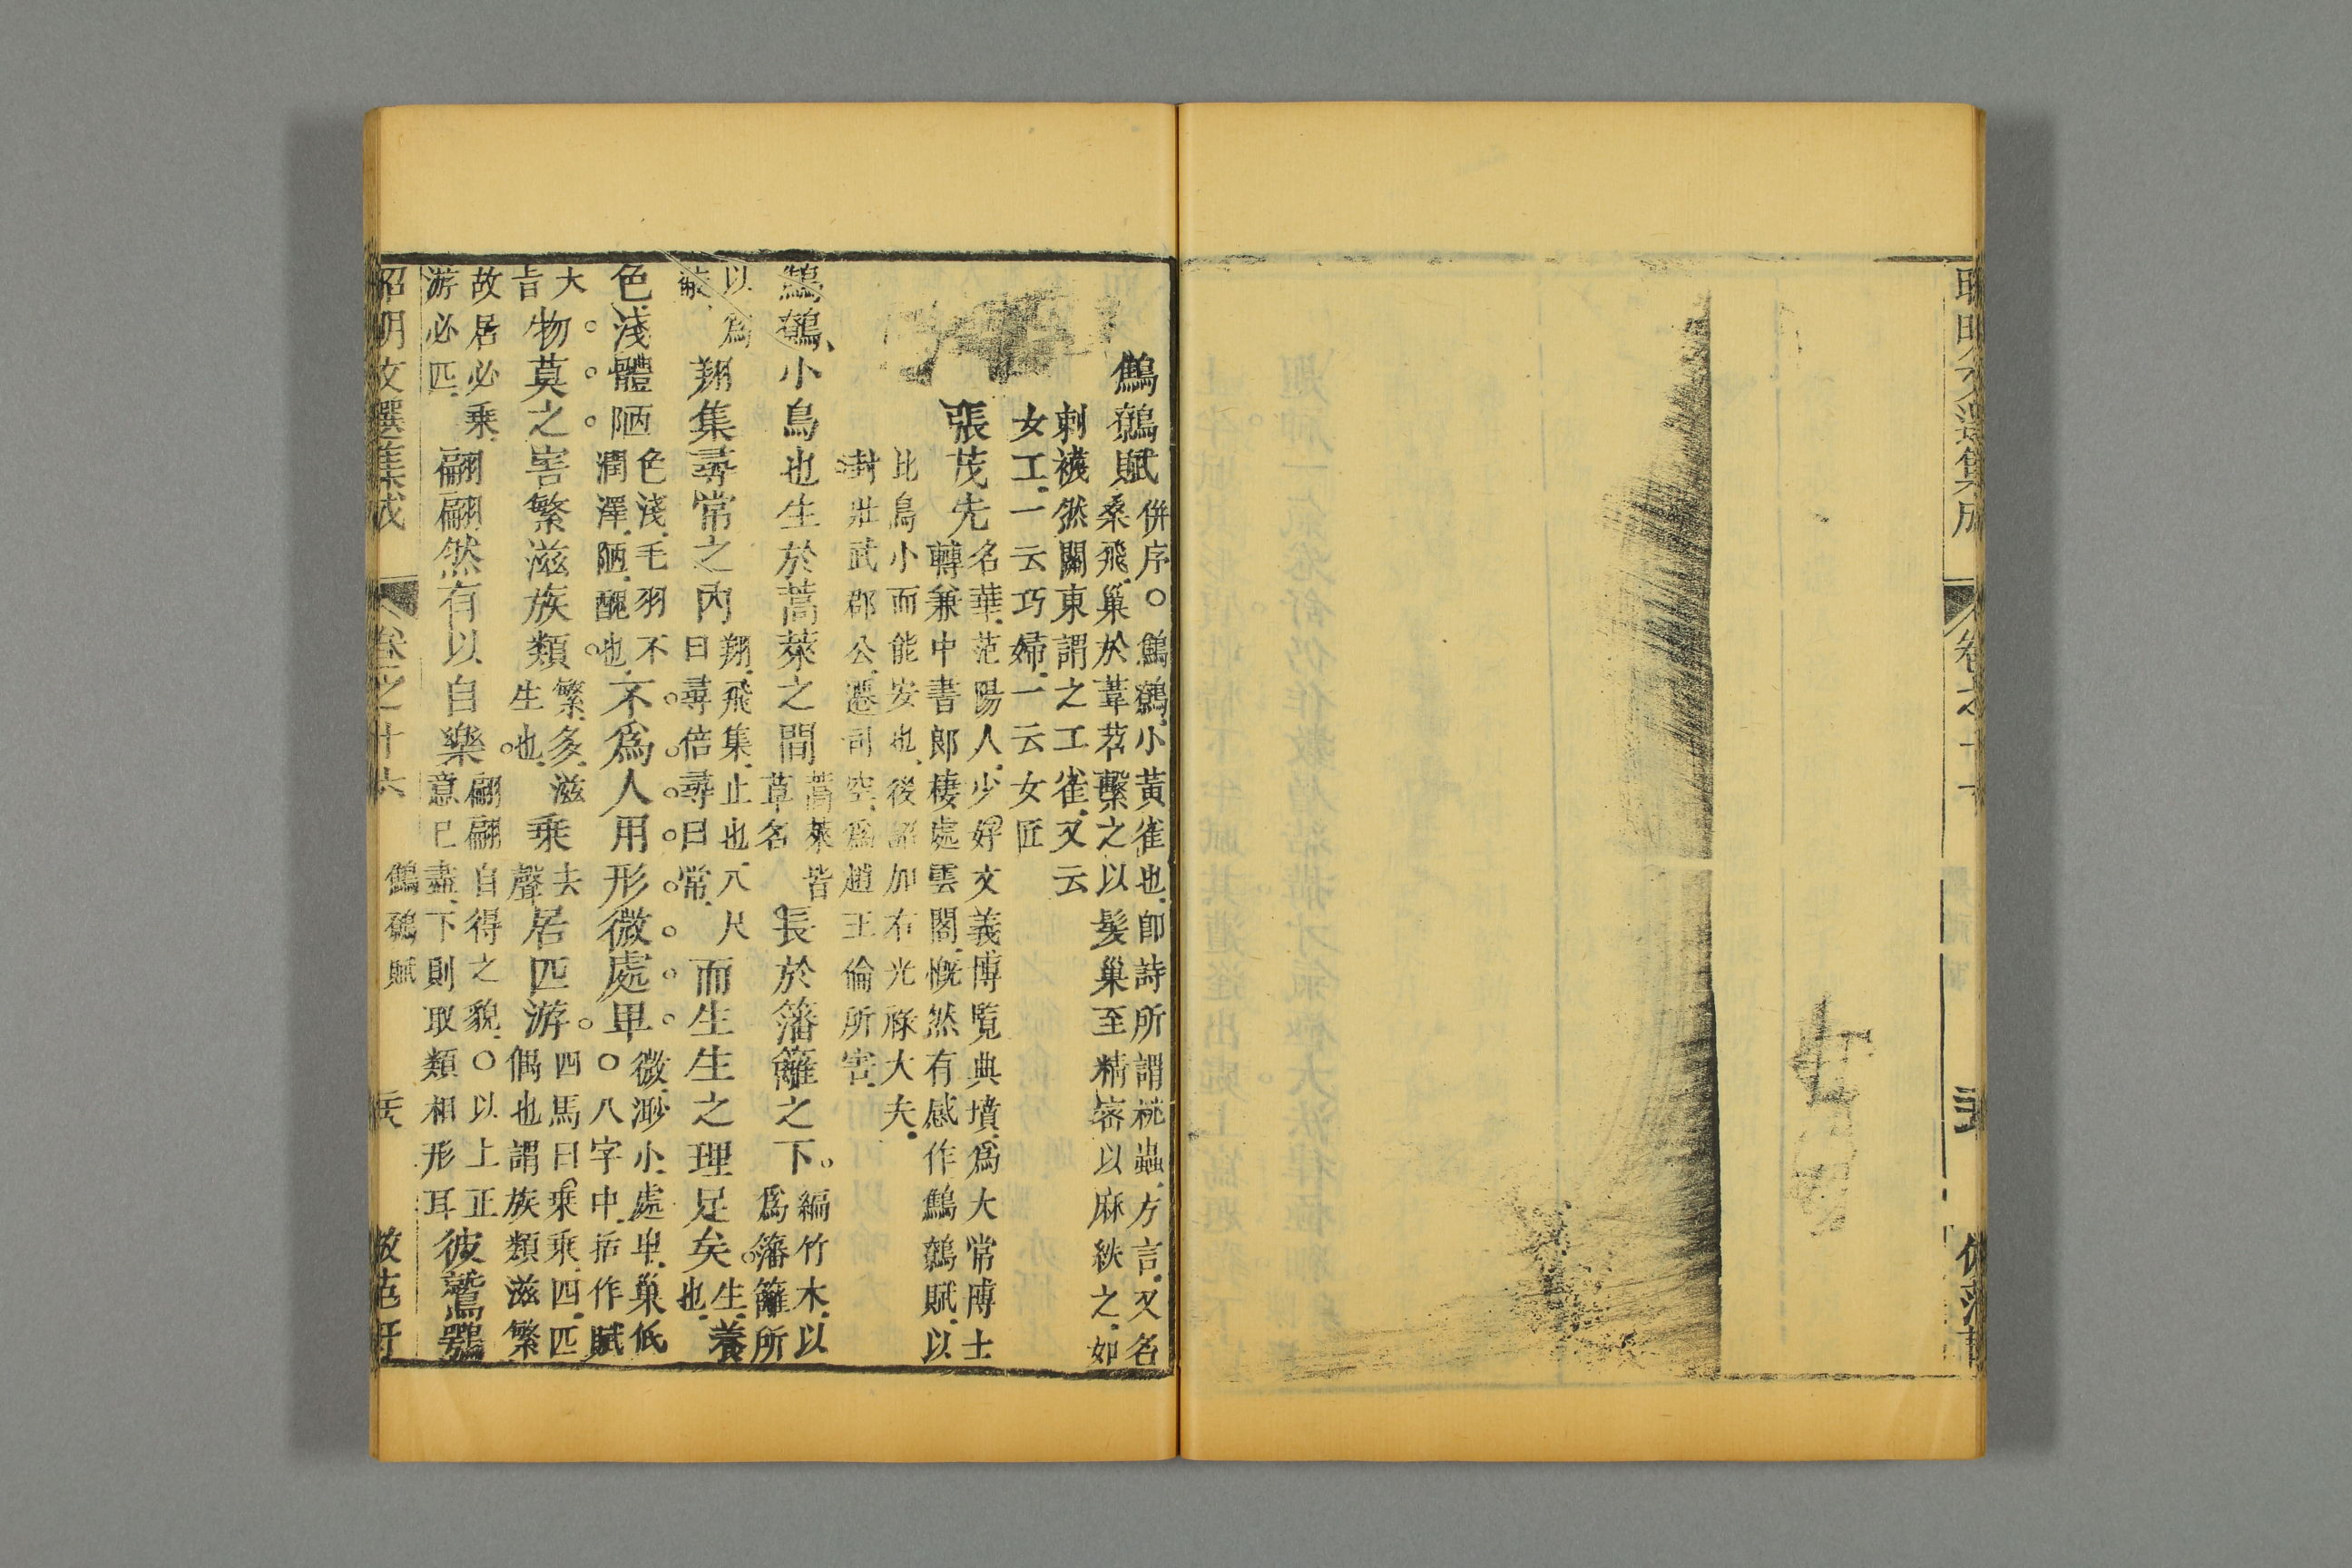 鷦鷯賦 併序○鷦鷯小黃雀也卽詩所謂桃蟲方言又名
桑飛巢於葦苕繫之以髮巢至精密以麻紩之如
刺襪然關東謂之工雀又云
女工一云巧婦一云女匠
張茂先 名華范陽人少好文義博覽典墳爲大常博士
轉兼中書郎棲處雲閣慨然有感作鷦鷯賦以
比鳥小而能安也後詔加右光祿大夫
封壯武郡公遷司空爲趙王倫所害
鷦鷯小鳥也生於蒿萊之間 蒿萊皆
草名 長於籓籬之下 編竹木以
爲籓籬所
以爲
蔽 翔集尋常之內 翔飛集止也八尺
曰尋倍尋曰常 而生生之理足矣 生養
也
色淺體陋 色淺毛羽不
潤澤陋醜也 不爲人用形微處卑○ 微渺小處卑巢低
八字中括作賦
大
旨 物莫之害繁滋族類 繁多滋
生也 乘 去
聲 居匹游 四馬曰乘乘四匹
偶也謂族類滋繁
故居必乘
游必匹 翩翩然有以自樂 翩翩自得之貌○以上正
意已盡下則取類相形耳 彼鷲鶚
昭明文選集成 卷之十六 鷦鷯賦